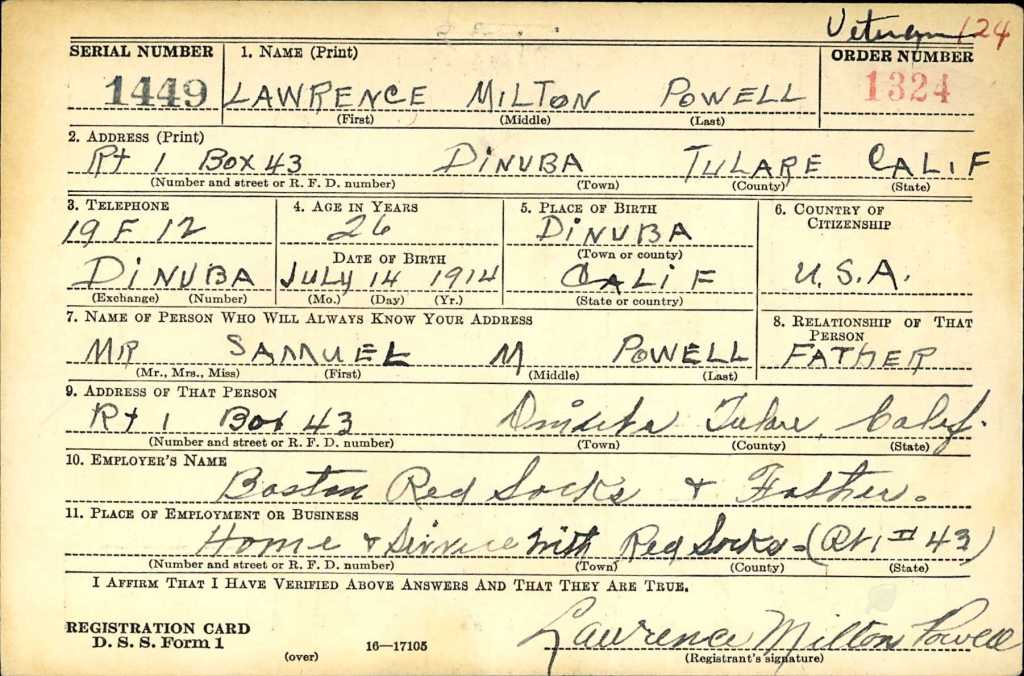 Veteran 124
SERIAL NUMBER 1. NAME (Print) ORDER NUMBER
1449 LAWRENCE MILTON POWELL 1324
(First) (Middle) (Last)
2. ADDRESS (Print)
Rt 1 Box 43 DINUBA TULARE CALIF
(Number and street or R. F. D. number) (Town) (County) (State)
3. TELEPHONE 4. AGE IN YEARS 5. PLACE OF BIRTH 6. COUNTRY OF CITIZENSHIP
19 F 12 26 DINUBA
DATE OF BIRTH (Town or county)
DINUBA JULY 14 1914 CALIF U.S.A.
(Exchange) (Number) (Mo.) (Day) (Yr.) (State or country)
7. NAME OF PERSON WHO WILL ALWAYS KNOW YOUR ADDRESS 8. RELATIONSHIP OF THAT PERSON
MR SAMUEL M POWELL FATHER
(Mr., Mrs., Miss) (First) (Middle) (Last)
9. ADDRESS OF THAT PERSON
Rt 1 Box 43 Dinuba Tulare, Calif.
(Number and street or R. F. D. number) (Town) (County) (State)
10. EMPLOYER'S NAME
Boston Red Socks + Father.
11. PLACE OF EMPLOYMENT OR BUSINESS
Home + Service with Red Socks - (Rt 1 43)
(Number and street or R. F. D. number) (Town) (County) (State)
I AFFIRM THAT I HAVE VERIFIED ABOVE ANSWERS AND THAT THEY ARE TRUE.
REGISTRATION CARD
D. S. S. Form 1 16—17105 Lawrence Milton Powell
(over) (Registrant's signature)